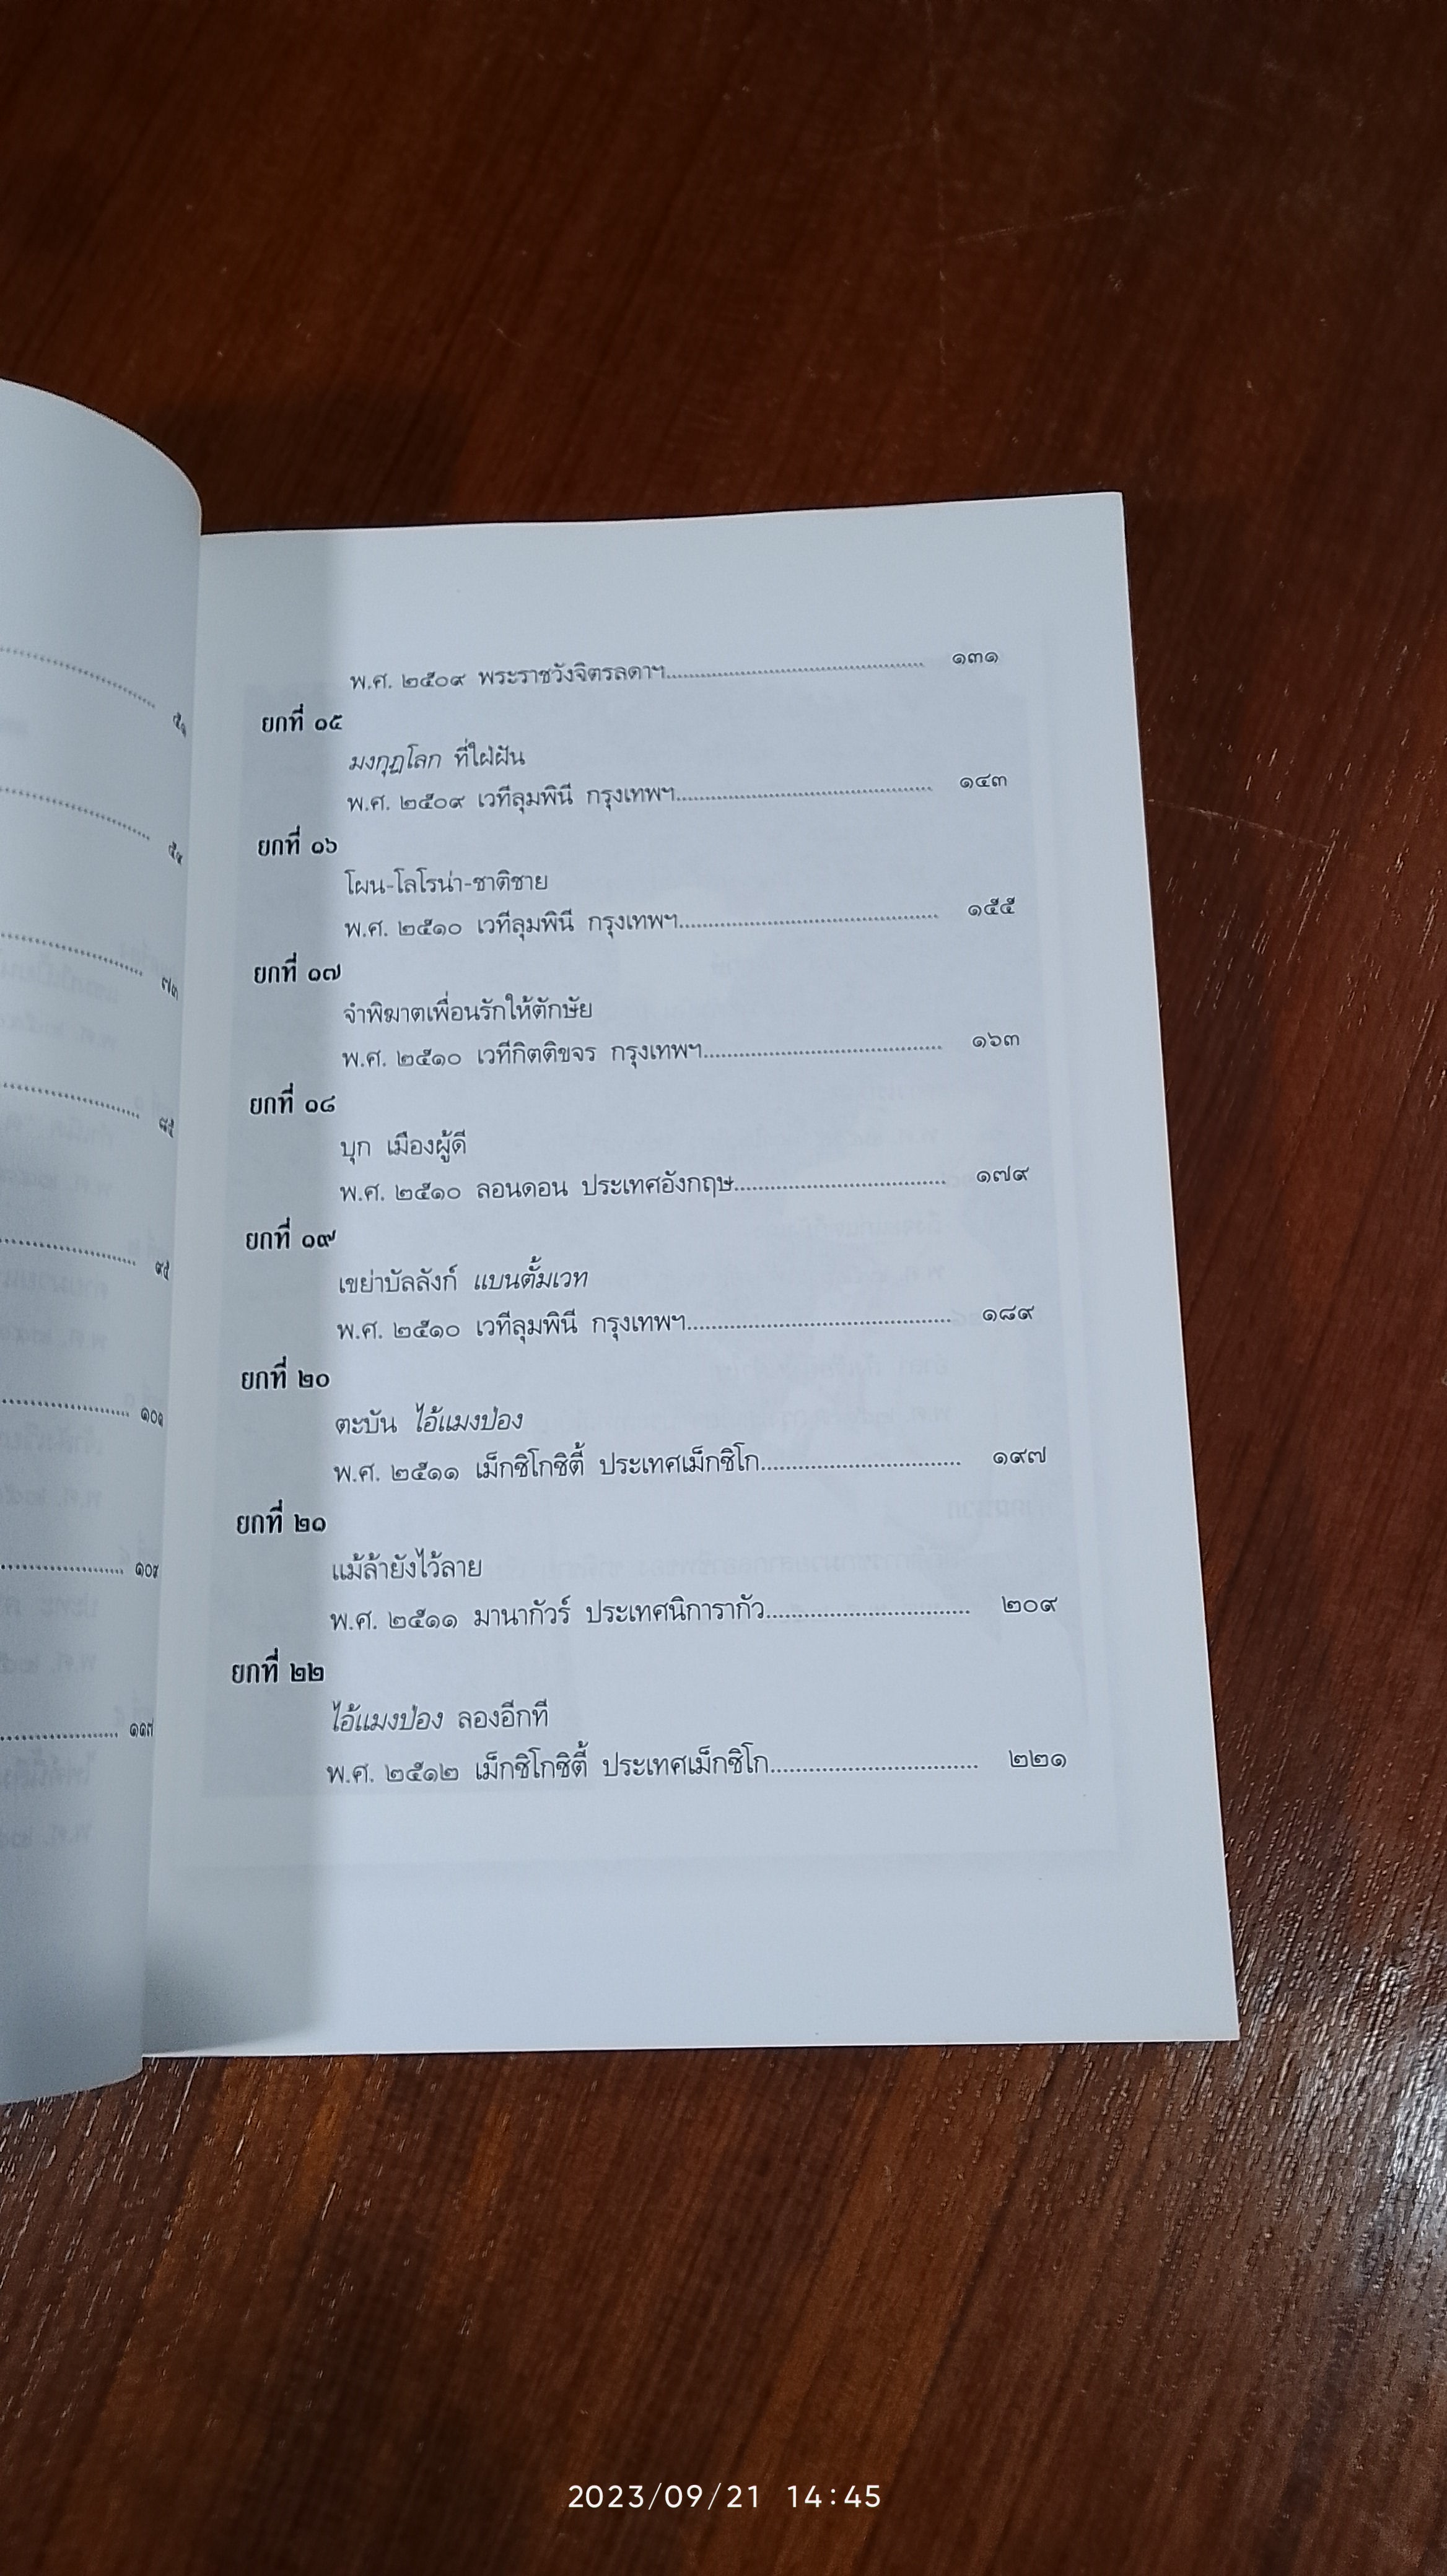 ๕๑
๗๓
๘๕
๙๕
๑๐๑
๑๐๙
๑๑๗
พ.ศ. ๒๕๐๙ พระราชวังจิตรลดาฯ.......... ๑๓๑
ยกที่ ๑๕
มงกุฎโลก ที่ใฝ่ฝัน
พ.ศ. ๒๕๐๙ เวทีลุมพินี กรุงเทพฯ.......... ๑๔๓
ยกที่ ๑๖
โผน-โลโรน่า-ชาติชาย
พ.ศ. ๒๕๑๐ เวทีลุมพินี กรุงเทพฯ.......... ๑๕๕
ยกที่ ๑๗
จำพิฆาตเพื่อนรักให้ตักษัย
พ.ศ. ๒๕๑๐ เวทีกิตติขจร กรุงเทพฯ.......... ๑๖๓
ยกที่ ๑๘
บุก เมืองผู้ดี
พ.ศ. ๒๕๑๐ ลอนดอน ประเทศอังกฤษ.......... ๑๗๙
ยกที่ ๑๙
เขย่าบัลลังก์ แบนตั้มเวท
พ.ศ. ๒๕๑๐ เวทีลุมพินี กรุงเทพฯ.......... ๑๘๙
ยกที่ ๒๐
ตะบัน ไอ้แมงป่อง
พ.ศ. ๒๕๑๑ เม็กซิโกซิตี้ ประเทศเม็กซิโก.......... ๑๙๗
ยกที่ ๒๑
แม้ล้ายังไว้ลาย
พ.ศ. ๒๕๑๑ มานากัวร์ ประเทศนิการากัว.......... ๒๐๙
ยกที่ ๒๒
ไอ้แมงป่อง ลองอีกที
พ.ศ. ๒๕๑๒ เม็กซิโกซิตี้ ประเทศเม็กซิโก.......... ๒๒๑
2023/09/21 14:45